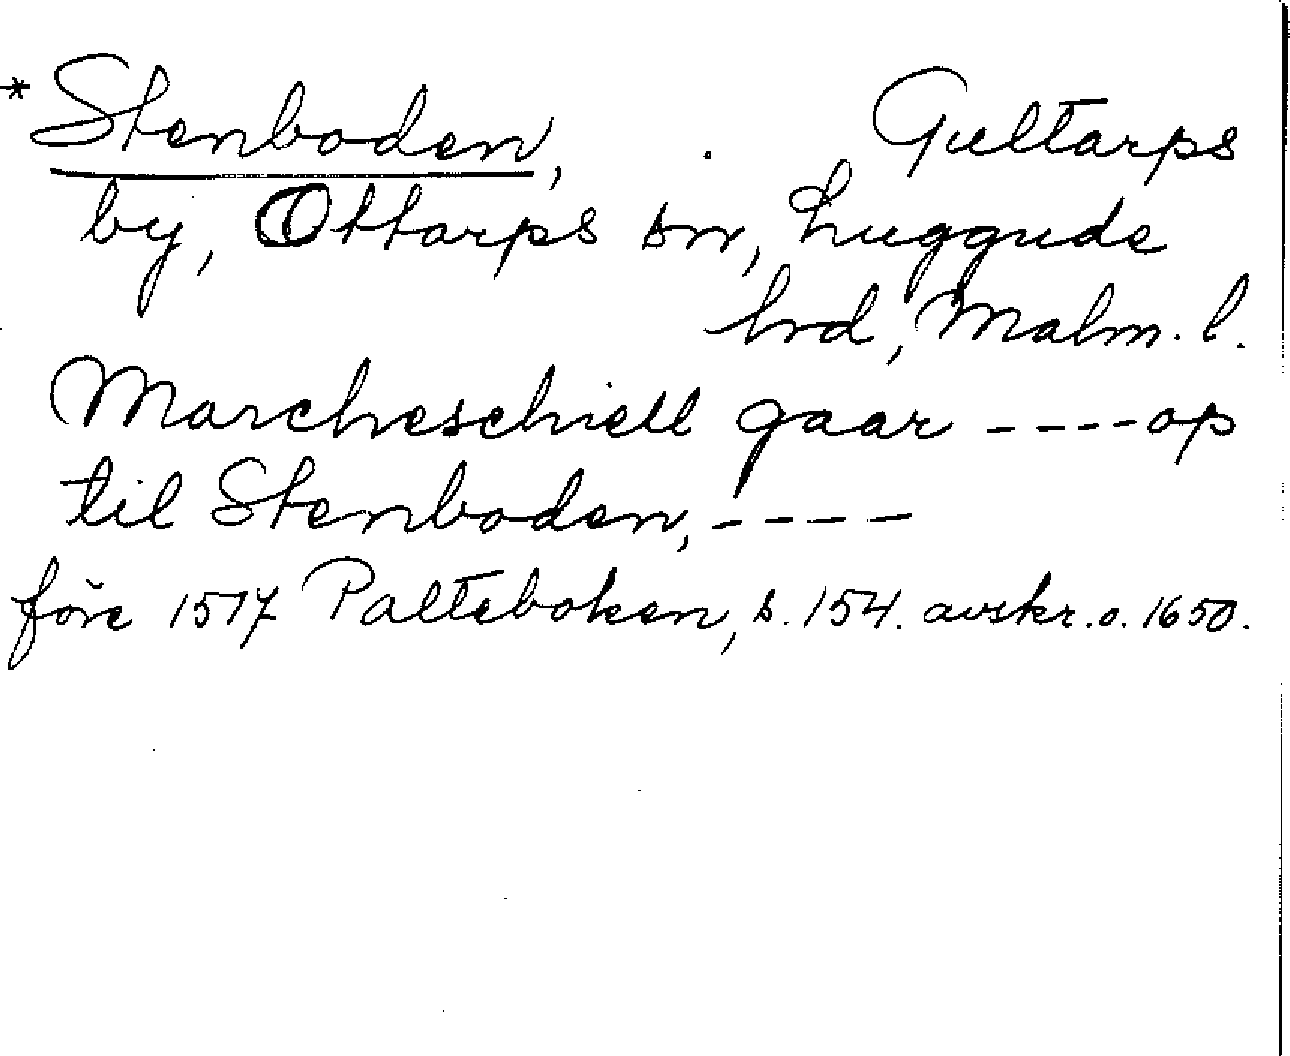 * Stenboden, Gultarps
by, Ottarps sn, Luggude
hrd, Malm. l.
Marcheschiell gaar ----op
til Stenboden, ----
före 1517 Palteboken, s. 154. avskr. o. 1650.